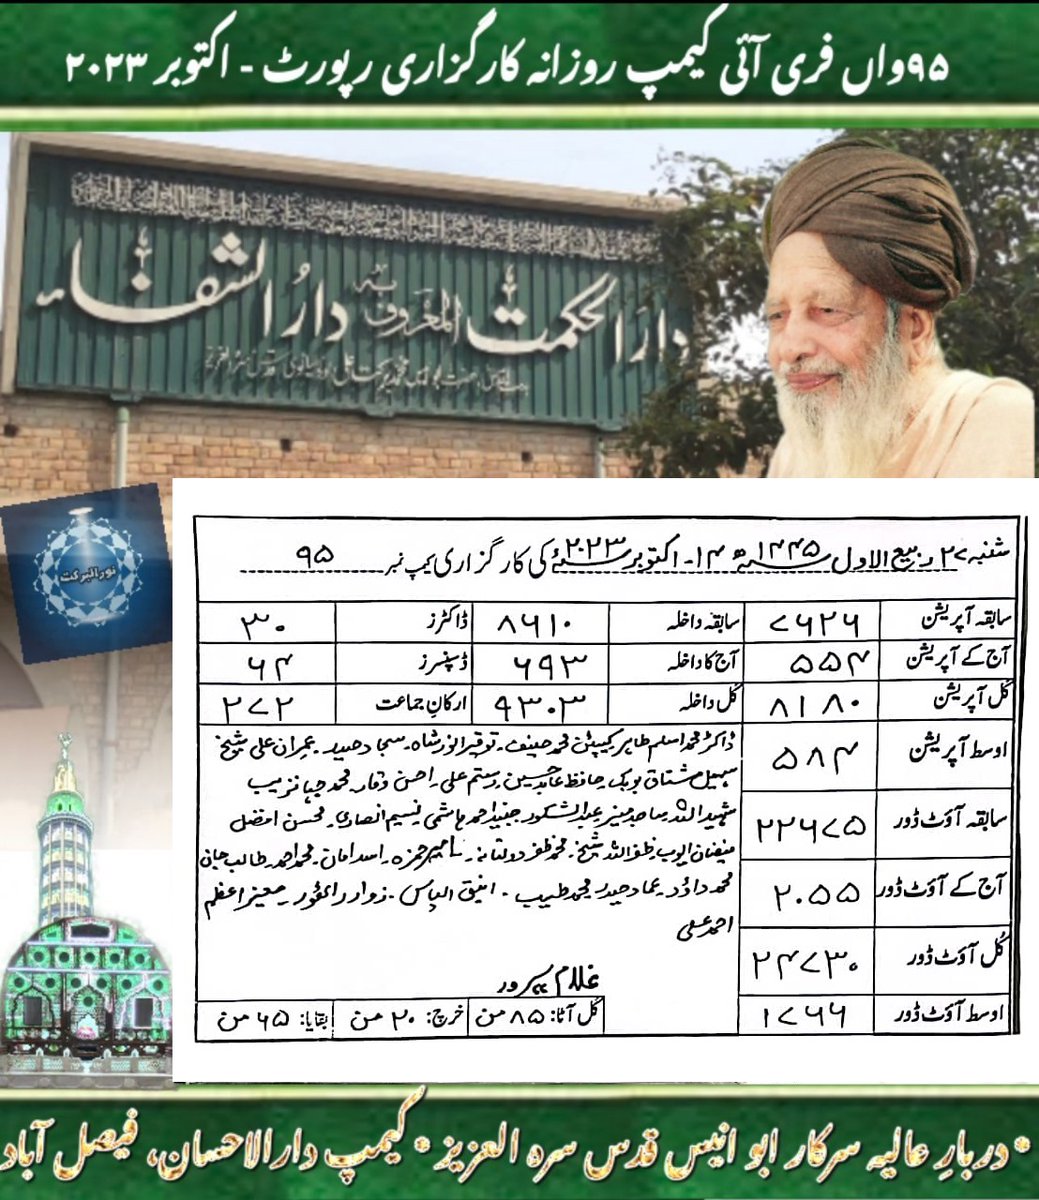 ۹۵واں فری آئی کیمپ روزانہ کارگزاری رپورٹ - اکتوبر ۲۰۲۳
دارُ الحکمت المعروف بہ دارُ الشفاء
نور البرکت
شنبہ ۲۷ ربیع الاول ۱۴۴۵ھ ۱۴- اکتوبر ۲۰۲۳ء کی کارگزاری کیمپ نمبر ۹۵
سابقہ آپریشن ۷۶۲۶ سابقہ داخلہ ۸۶۱۰ ڈاکٹرز ۳۰
آج کے آپریشن ۵۵۴ آج کا داخلہ ۶۹۳ ڈسپنسرز ۶۴
کُل آپریشن ۸۱۸۰ کُل داخلہ ۹۳۰۳ ارکانِ جماعت ۲۷۲
اوسط آپریشن ۵۸۴
سابقہ آؤٹ ڈور ۲۲۶۷۵
آج کے آؤٹ ڈور ۲۰۵۵
کُل آؤٹ ڈور ۲۴۷۳۰
اوسط آؤٹ ڈور ۱۷۶۶
ڈاکٹر محمد اسلم طاہر۔ کیپٹن محمد حنیف۔ توقیر انور شاہ۔ سجاد حیدر۔ عمران علی شیخ
سہیل مشتاق حافظ عابد حسین۔ رستم علی۔ احسن وقار۔ محمد جہانزیب
شہید اللہ عبدالشکور۔ جنید احمد ہاشمی نسیم انصاری۔ محسن افضل
فیضان ایوب۔ ظفر اللہ شیخ۔ محمد ظفر دولتانہ۔ امیر حمزہ۔ اسد امان۔ محمد احمد۔ طالب جان
محمد داؤد۔ عماد حیدر۔ محمد طیب۔ انیق الیاس۔ زوار معیز اعظم
احمد علی
غلام سرور
کُل آٹا: ۸۵ من خرچ: ۲۰ من بقایا: ۶۵ من
* دربارِ عالیہ سرکار ابو انیس قدس سرہ العزیز * کیمپ دارالاحسان، فیصل آباد